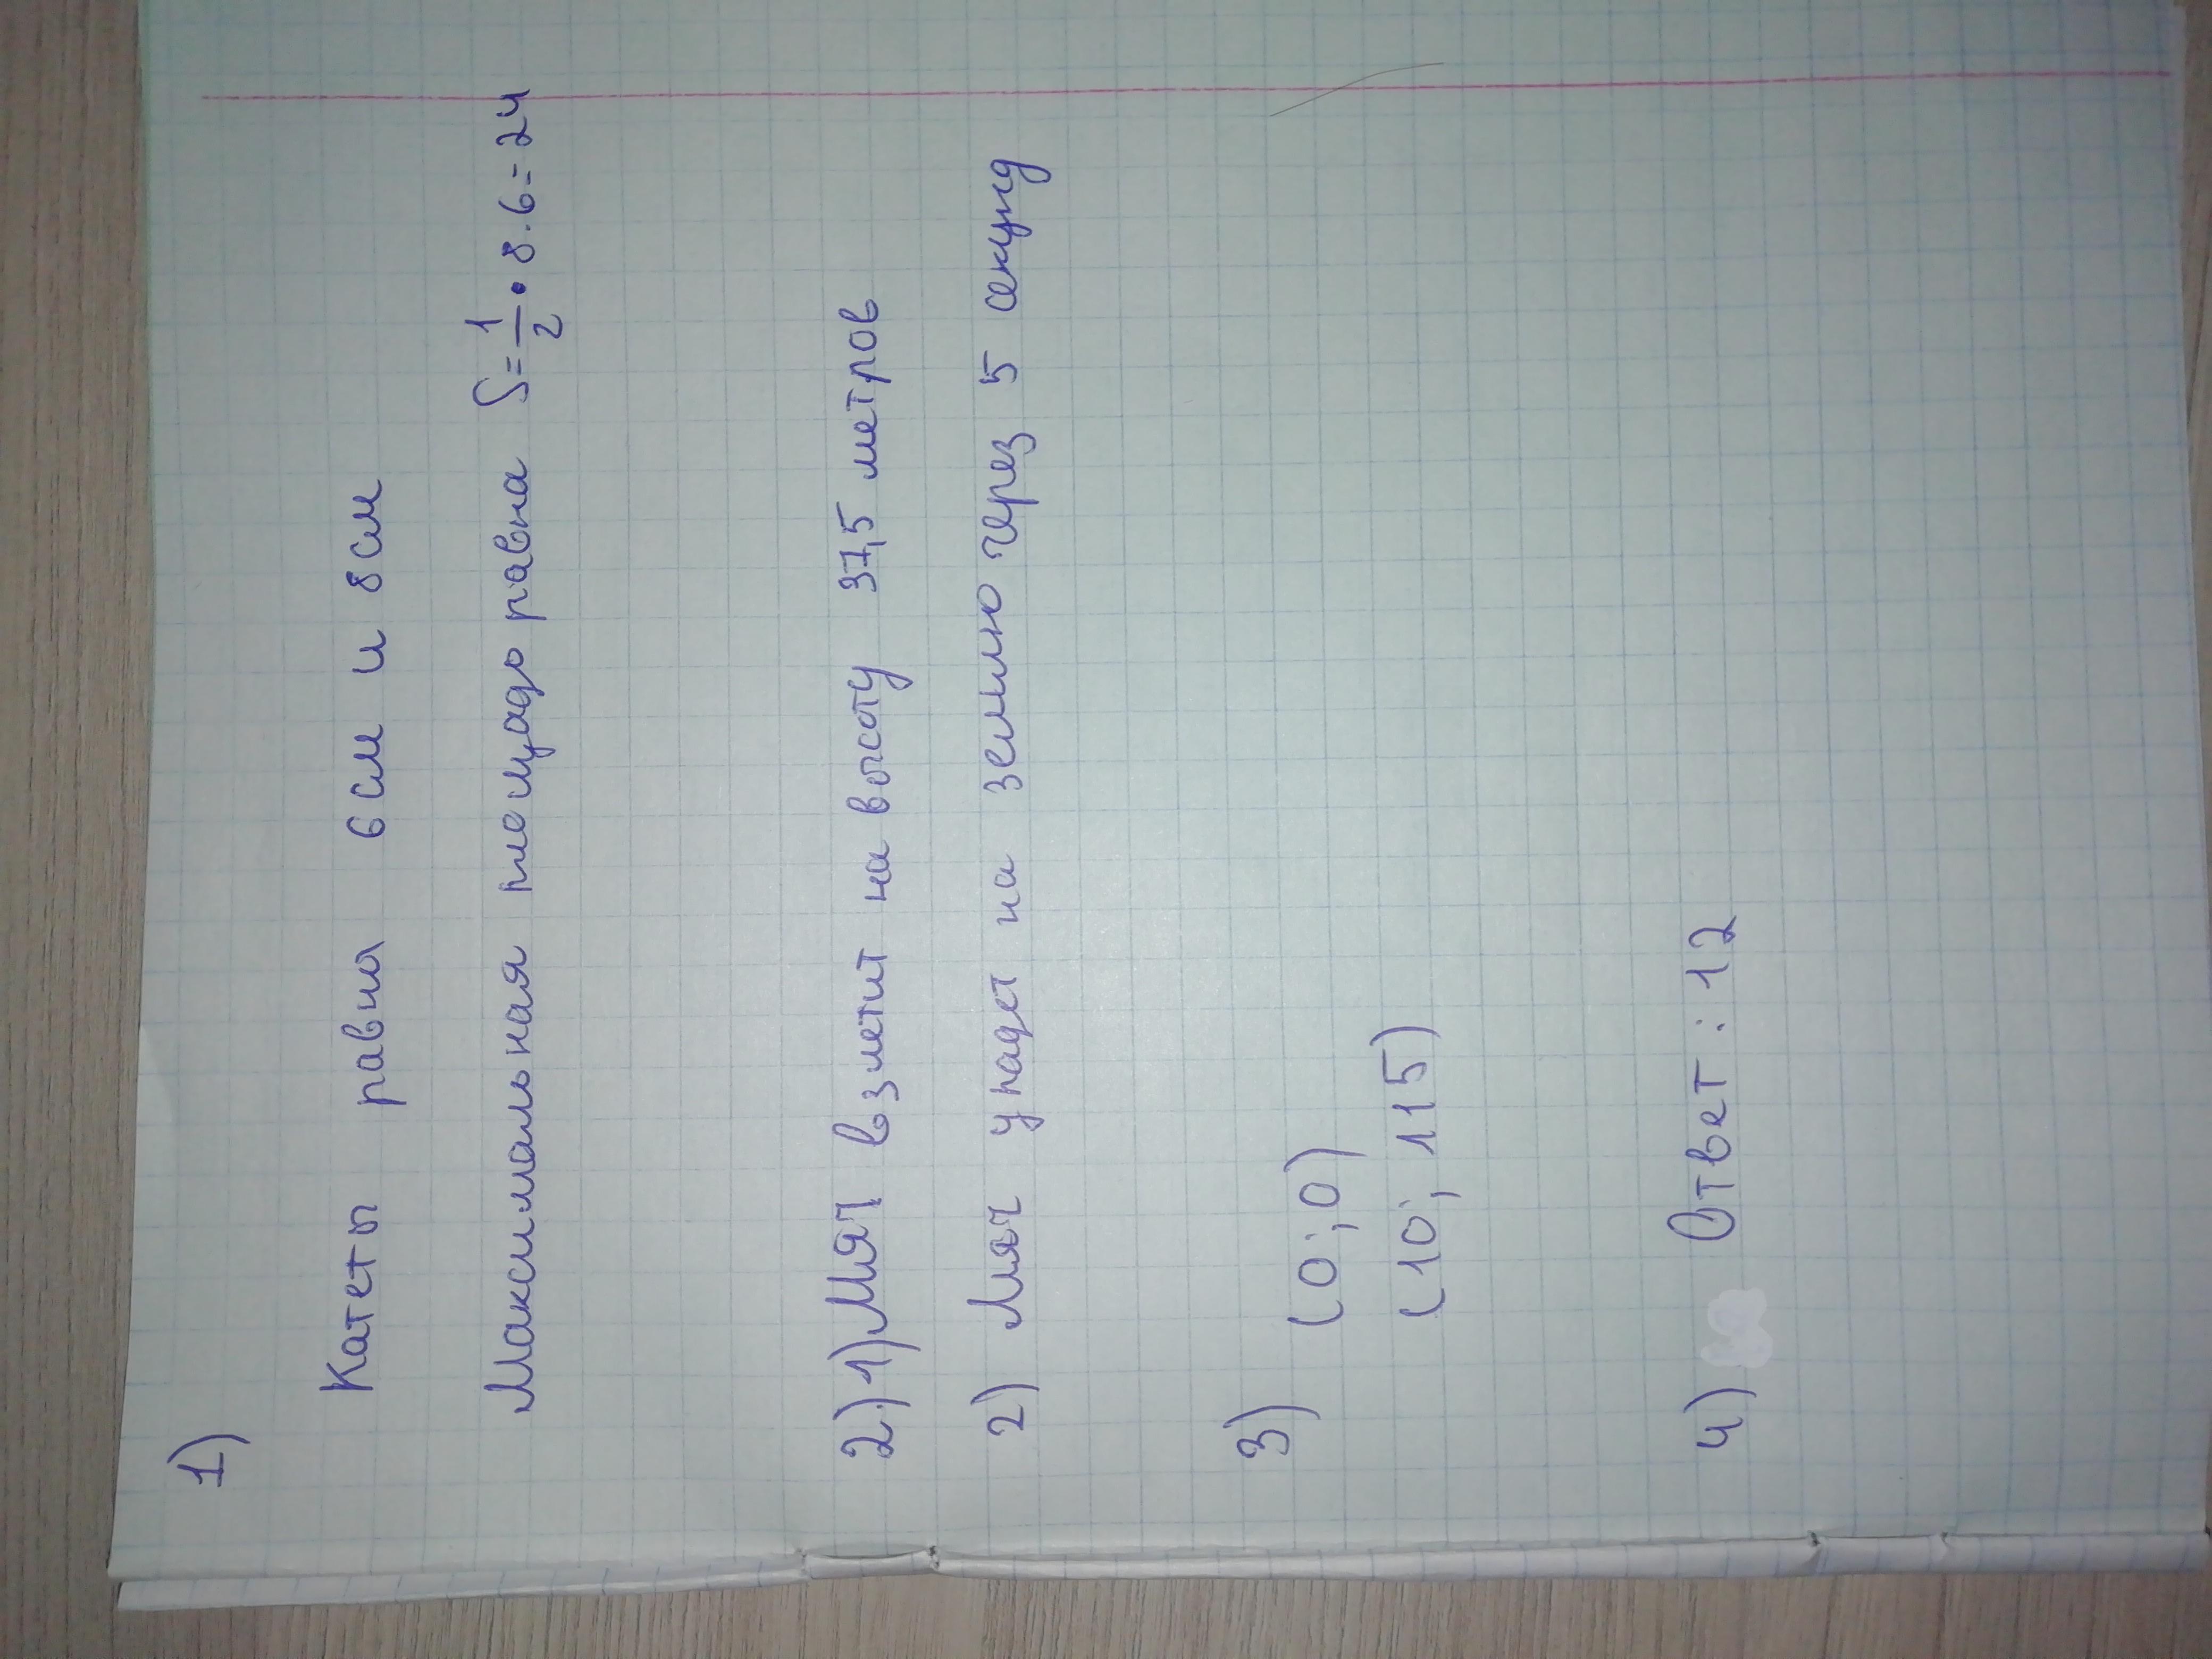 1)
Катеты равны 6 см и 8 см
Максимальная площадь равна S = 1/2 • 8 . 6 = 24
2) 1) Мяч взлетит на высоту 37,5 метров
2) Мяч упадет на землю через 5 секунд
3) (0 ; 0)
(10 ; 115)
4) Ответ : 12